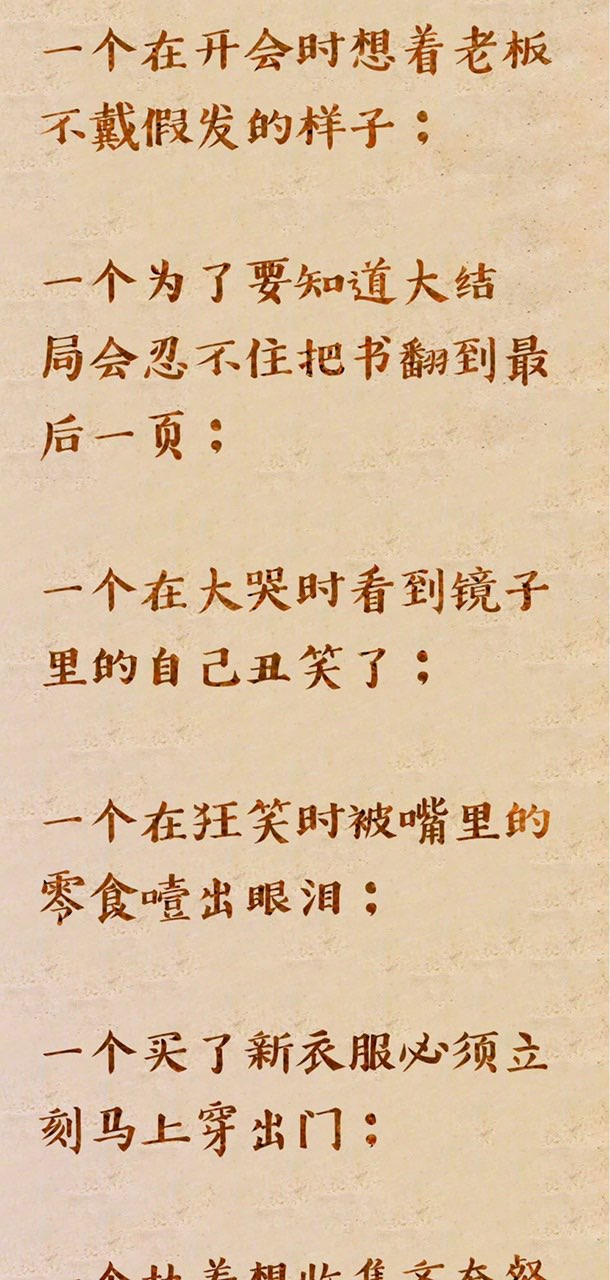 一个在开会时想着老板
不戴假发的样子；
一个为了要知道大结
局会忍不住把书翻到最
后一页；
一个在大哭时看到镜子
里的自己丑笑了；
一个在狂笑时被嘴里的
零食噎出眼泪；
一个买了新衣服必须立
刻马上穿出门；